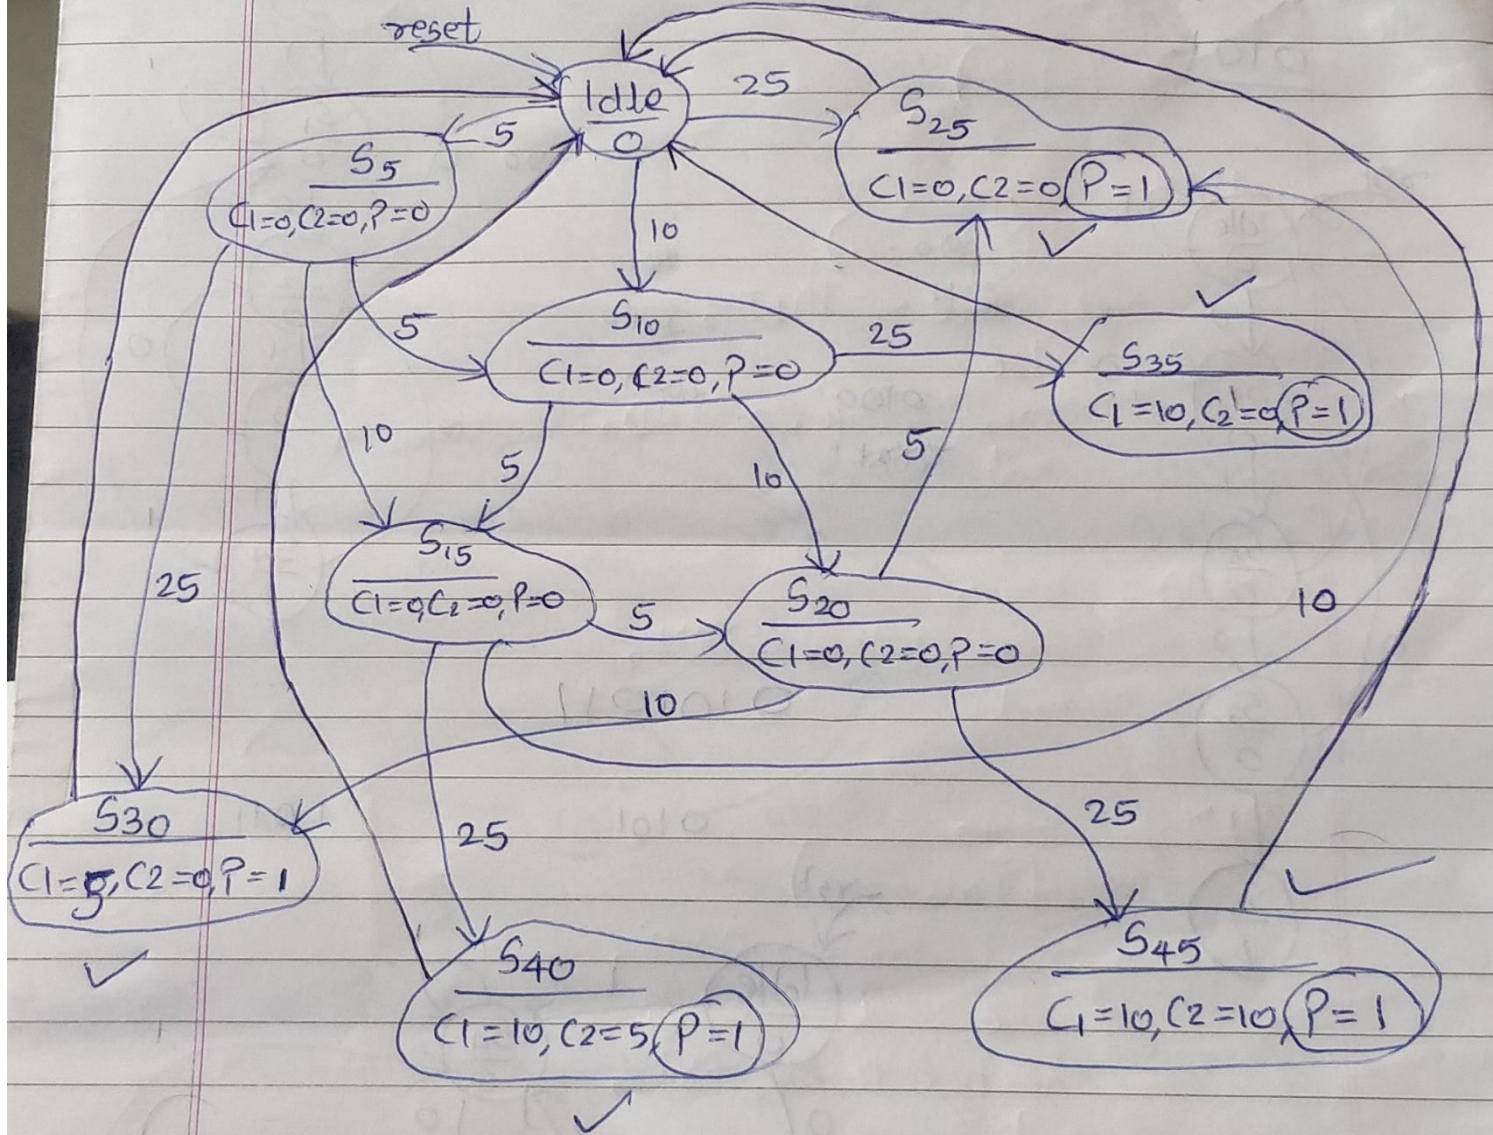 reset
Idle
0
25
S25
C1=0, C2=0, P=1
5
S5
C1=0, C2=0, P=0
10
S10
C1=0, C2=0, P=0
5
25
S35
C1=10, C2=0, P=1
10
5
10
5
S15
C1=0, C2=0, P=0
25
5
S20
C1=0, C2=0, P=0
10
10
S30
C1=5, C2=0, P=1
25
25
S40
C1=10, C2=5, P=1
S45
C1=10, C2=10, P=1